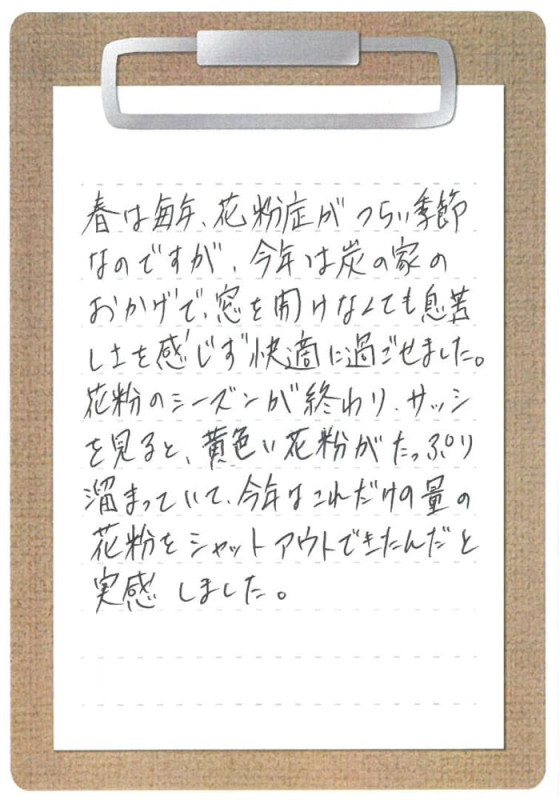 春は毎年、花粉症がつらい季節
なのですが、今年は炭の家の
おかげで、窓を開けなくても息苦
しさを感じず快適に過ごせました。
花粉のシーズンが終わり、サッシ
を見ると、黄色い花粉がたっぷり
溜まっていて、今年はこれだけの量の
花粉をシャットアウトできたんだと
実感しました。